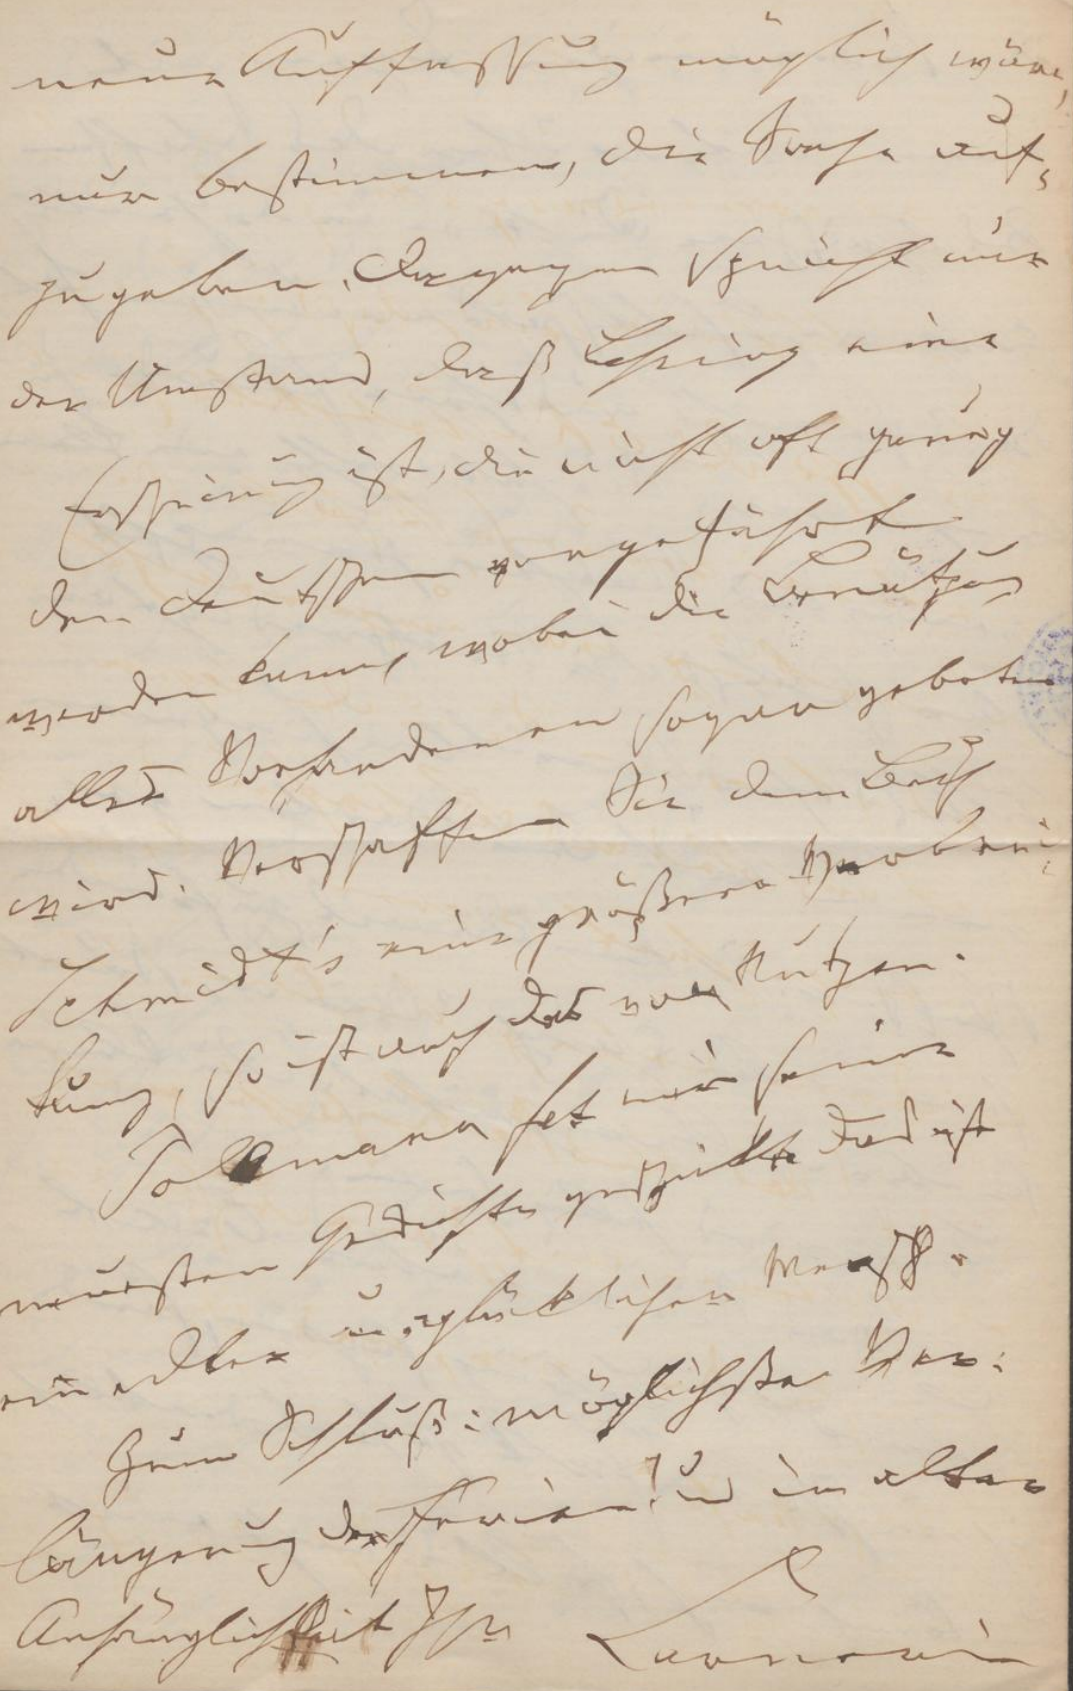 neue Auffassung möglich wäre,
nur bestimmen, die Sache auf-
zugeben. Dagegen spricht nur
der Umstand, daß Lessing eine
Erscheinung ist, die nicht oft genug
den Deutschen vorgeführt
werden kann, wobei die Benutzung
alles Vorhandenen sogar geboten
wird. Verschaffen Sie dem Buch
Schmidt's eine größere Verbrei-
tung, so ist auch das von Nutzen.
mann hat mir seine
neuesten Gedichte geschickt. Das ist
ein edler unglücklicher Mensch.
Zum Schluß: möglichste Ver-
längerung der Ferien! Und in alter
Anhänglichkeit Ihr